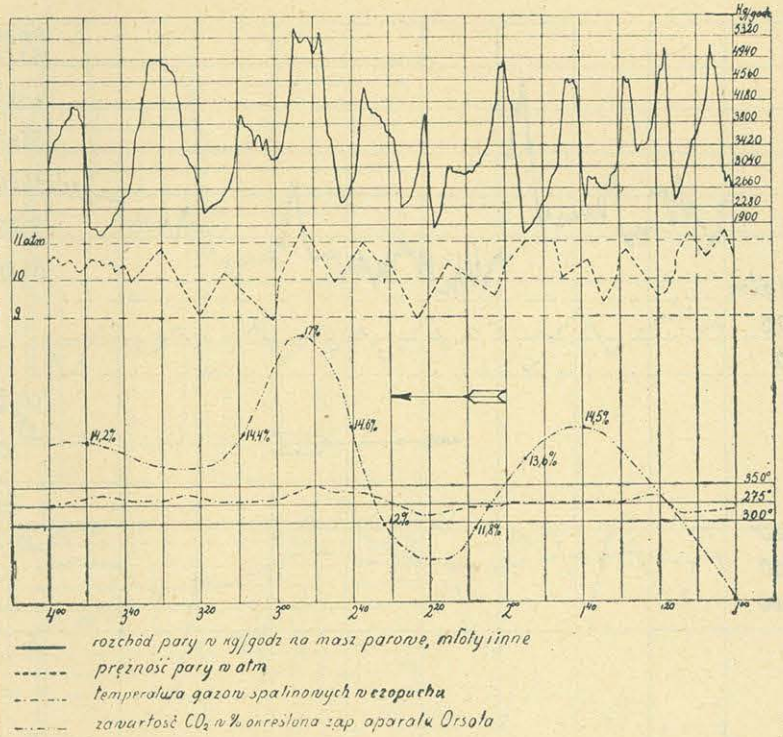 Kg/godz
5320
4940
4560
4180
3800
3420
3040
2660
2280
1900
11 atm
10
9
17%
14,2%
14.4%
14.6%
14,5%
13,6%
12%
11,8%
350°
275°
300°
4⁰⁰ 3⁴⁰ 3²⁰ 3⁰⁰ 2⁴⁰ 2²⁰ 2⁰⁰ 1⁴⁰ 1²⁰ 1⁰⁰
rozchód pary w kg/godz na masz parowe, młoty i inne
prężność pary w atm
temperatura gazow spalinowych w czopuchu
zawartość CO₂ w % określona zap aparatu Orsata